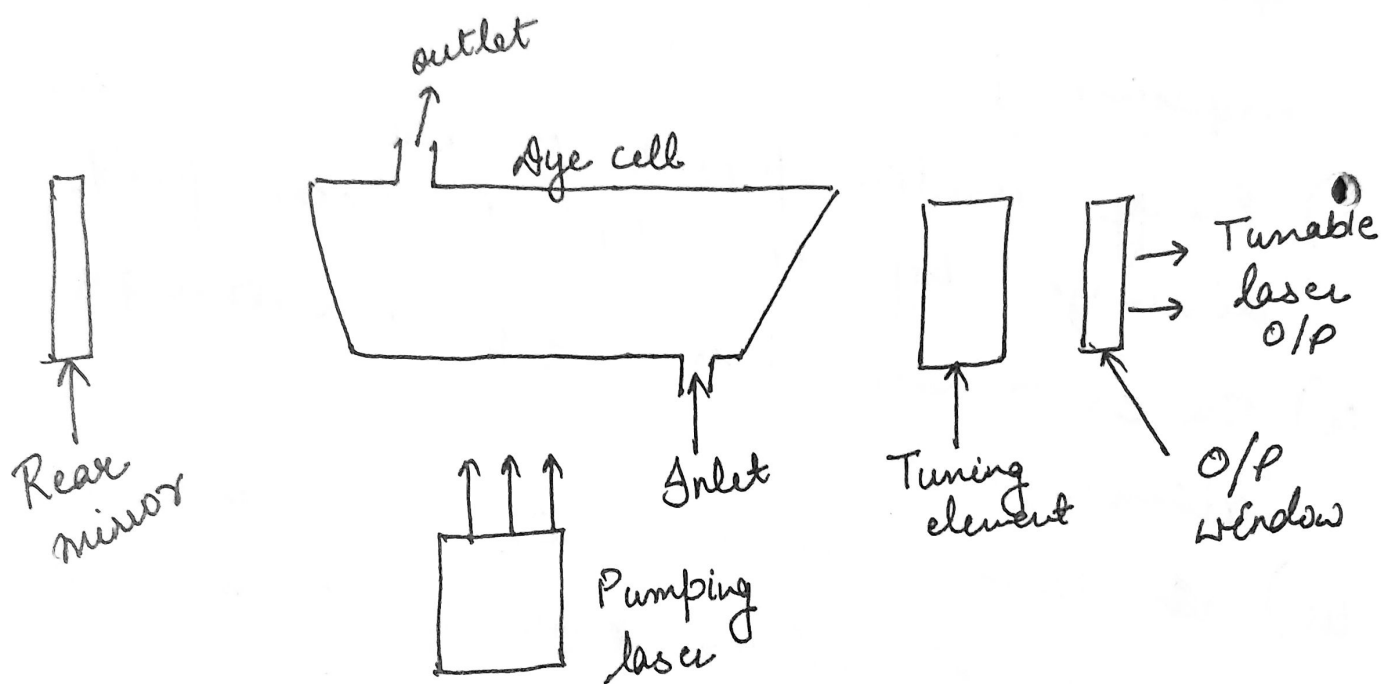 outlet
Dye cell
Tunable
laser
O/P
Rear
mirror
Inlet
Tuning
element
O/P
window
Pumping
laser